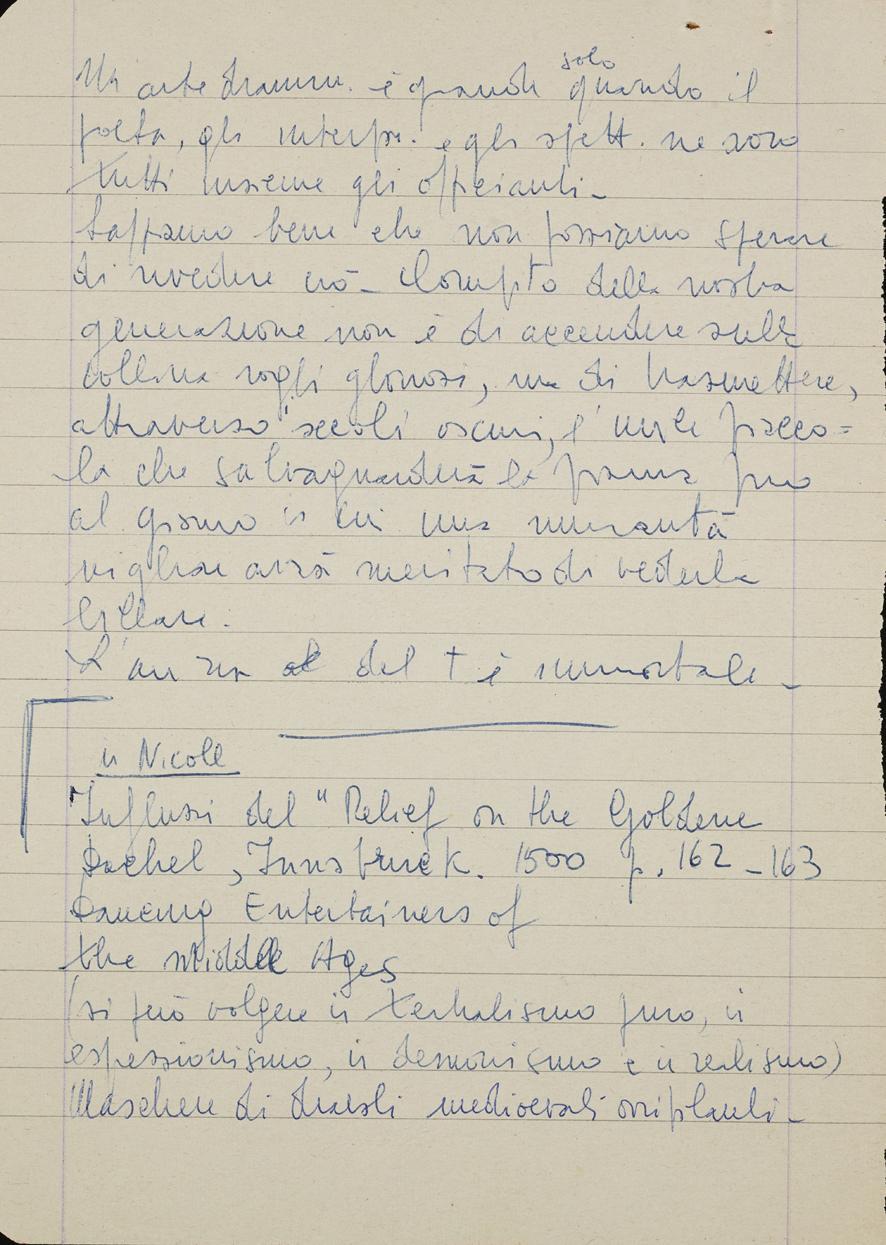 Un arte dramm. è grande solo quando il
poeta, gli interpr. e gli spett. ne sono
tutti insieme gli officianti_
Sappiamo bene che non possiamo sperare
di rivedere ciò_ Compito della nostra
generazione non è di accendere sulla
collina rogli gloriosi, ma di trasmettere,
attraverso i secoli oscuri, l'umile picco=
la che salvaguarderà la fiamma fino
al giorno in cui una umanità
migliore avrà meritato di vederla
brillare.
L' del t è immortale_
in Nicoll
Influssi del "Relief on the Goldene
Dachel, Innsbruck. 1500 p. 162_163
Dancing Entertainers of
the Middle Ages
(si può volgere in teatralismo puro, in
espressionismo, in demonismo e in realismo)
Maschere di diavoli medioevali orripilanti_